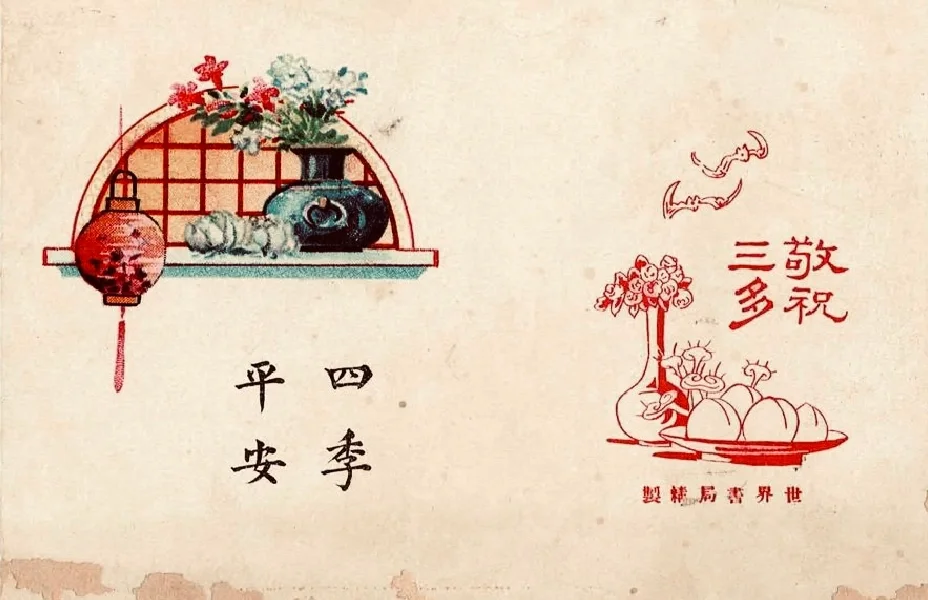 四季
平安
敬祝
三多
世界書局精製